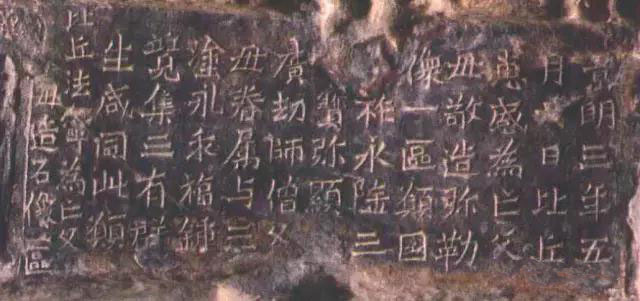 景明三年五
月日比丘
惠感為亡父
母敬造弥勒
像一區願囯
祚永隆三
寳弥顯
廣劫師僧父
母眷属与三
塗永乖福鍾
竟集三有群
生咸同此願
比丘法寧為亡父
母造石像一區